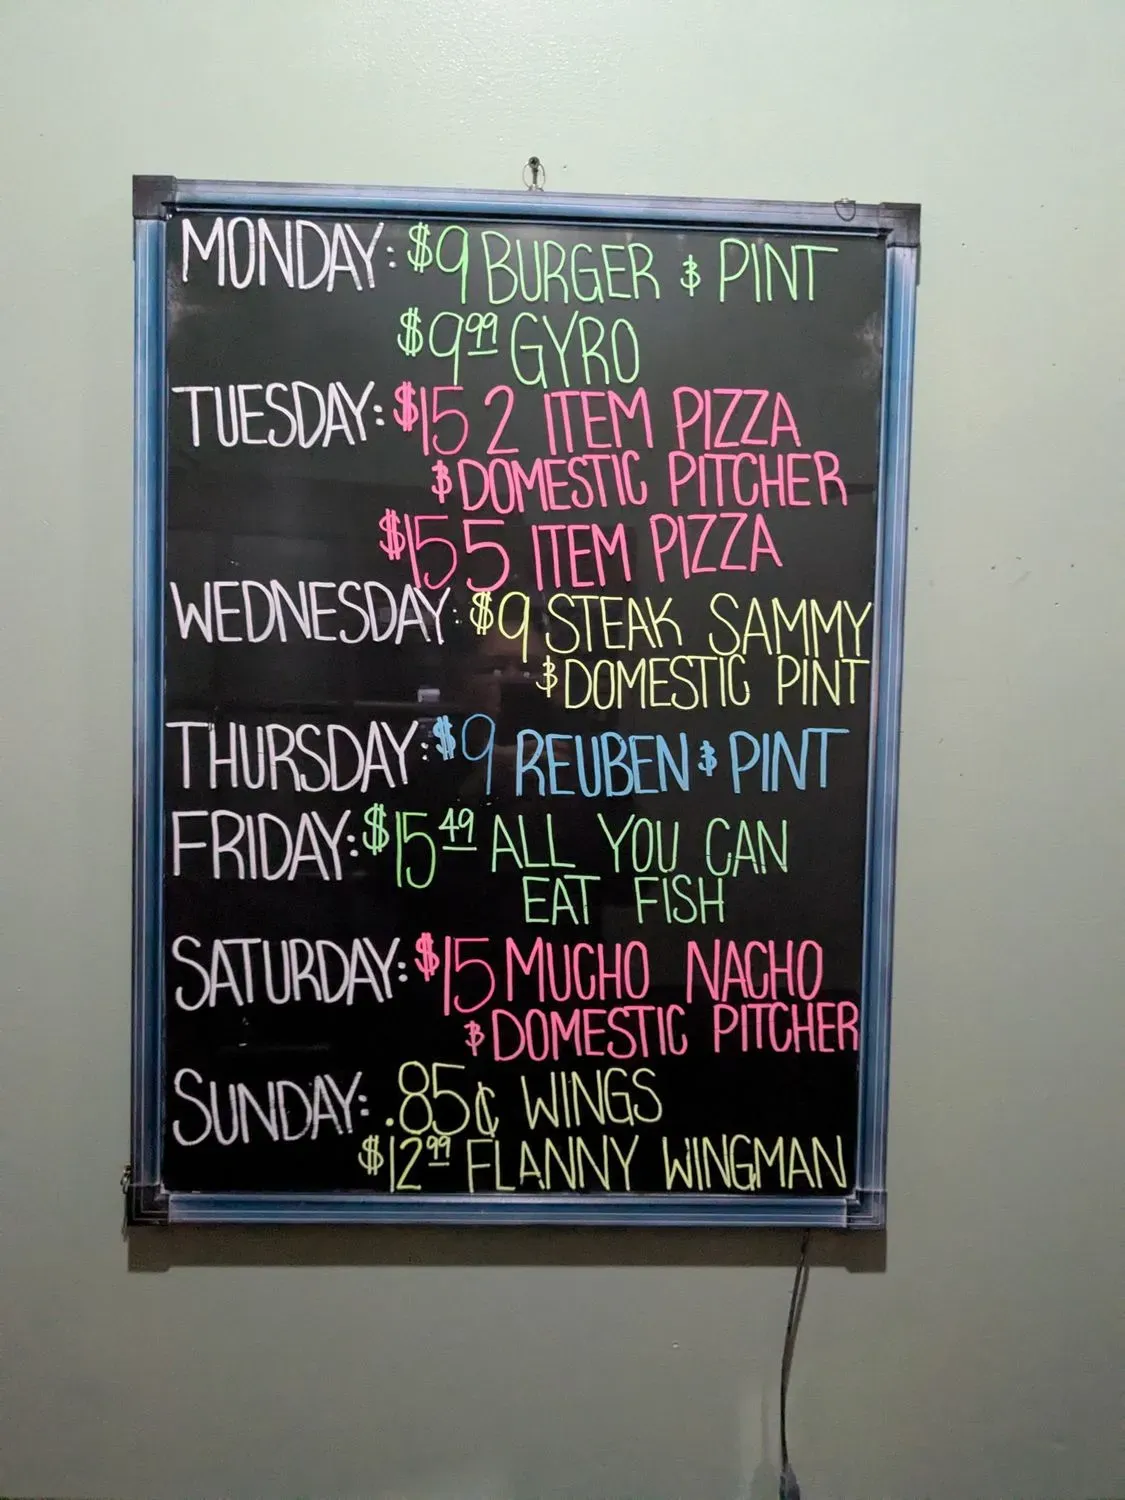 MONDAY: $9 BURGER & PINT
$9.99 GYRO
TUESDAY: $15 2 ITEM PIZZA
& DOMESTIC PITCHER
$15 5 ITEM PIZZA
WEDNESDAY: $9 STEAK SAMMY
& DOMESTIC PINT
THURSDAY: $9 REUBEN & PINT
FRIDAY: $15.49 ALL YOU CAN
EAT FISH
SATURDAY: $15 MUCHO NACHO
& DOMESTIC PITCHER
SUNDAY: .85¢ WINGS
$12.99 FLANNY WINGMAN